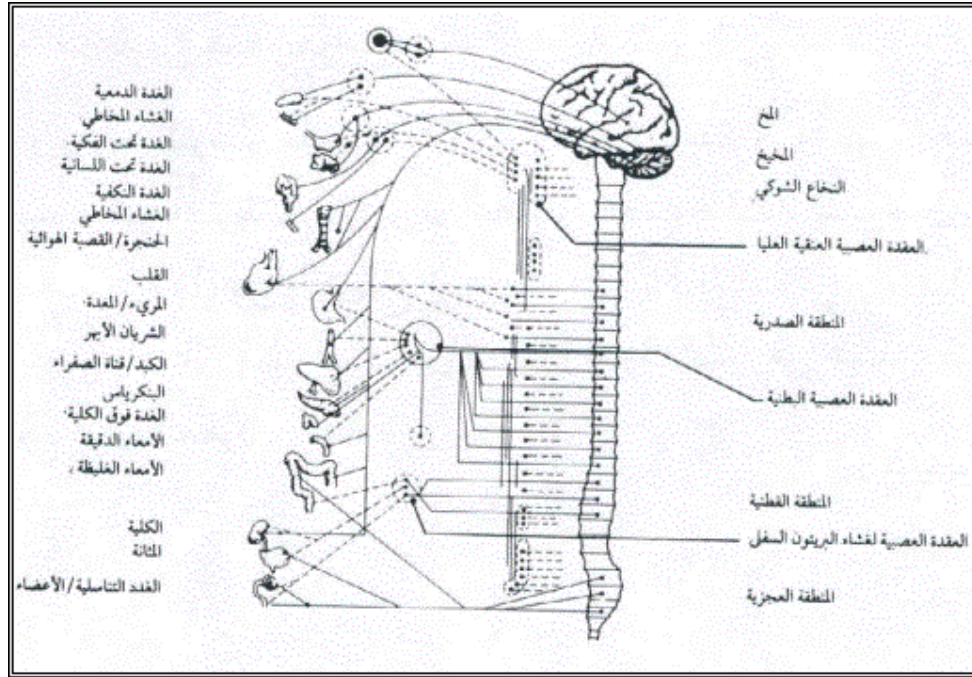 المخ
المخيخ
النخاع الشوكي
العقدة العصبية العنقية العليا.
المنطقة الصدرية
العقدة العصبية البطنية
المنطقة القطنية
العقدة العصبية لغشاء البريتون السفلي
المنطقة العجزية
الغدة الدمعية
الغشاء المخاطي
الغدة تحت الفكية.
الغدة تحت اللسانية
الغدة النكفية
الغشاء المخاطي
الحنجرة/القصبة الهوائية
القلب
المريء/المعدة
الشريان الأبهر
الكبد/قناة الصفراء
البنكرياس
الغدة فوق الكلية
الأمعاء الدقيقة
الأمعاء الغليظة
الكلية
المثانة
الغدد التناسلية/الأعضاء